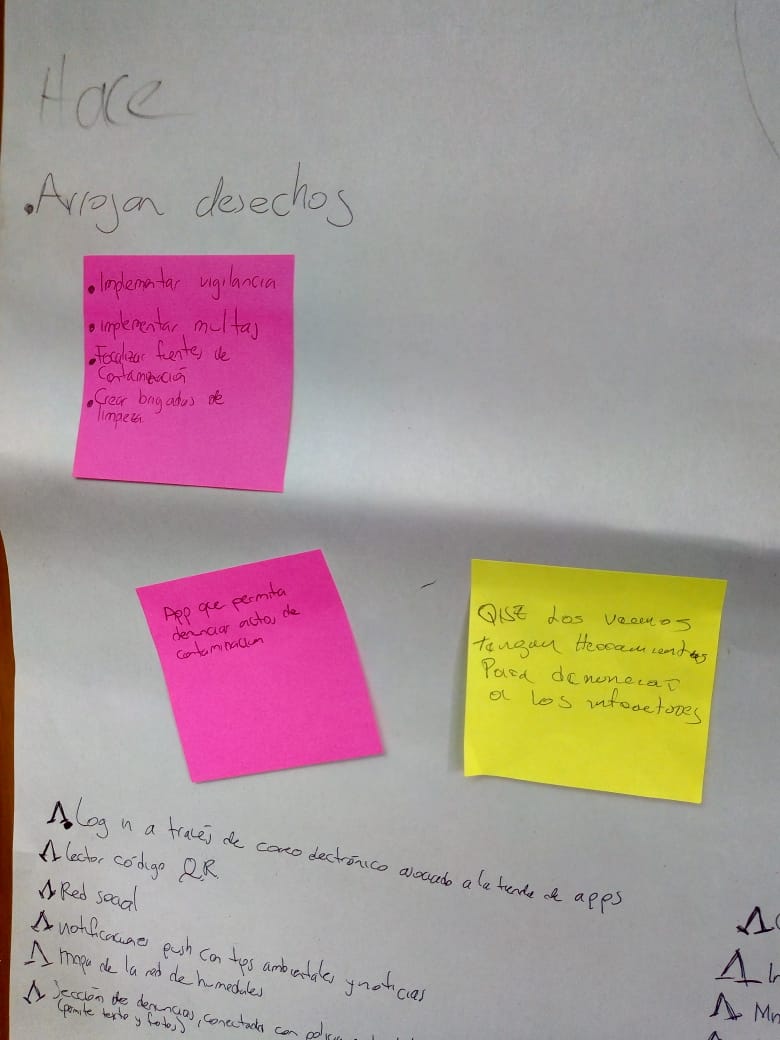 Hace
• Arrojan desechos
• Implementar vigilancia
• implementar multas
• Focalizar fuentes de
contaminación
• Crear brigadas de
limpeza
App que permita
denunciar actos de
contaminacion
QUE Los vecinos
tengan Herramientas
Para denunciar
a los infractores
Log n a través de correo electrónico asociado a la tienda de apps
lector código QR
Red social
notificaciones push con tips ambientales y noticias
mapa de la red de humedales
Sección de denuncias, conectada con
(permite texto y fotos)